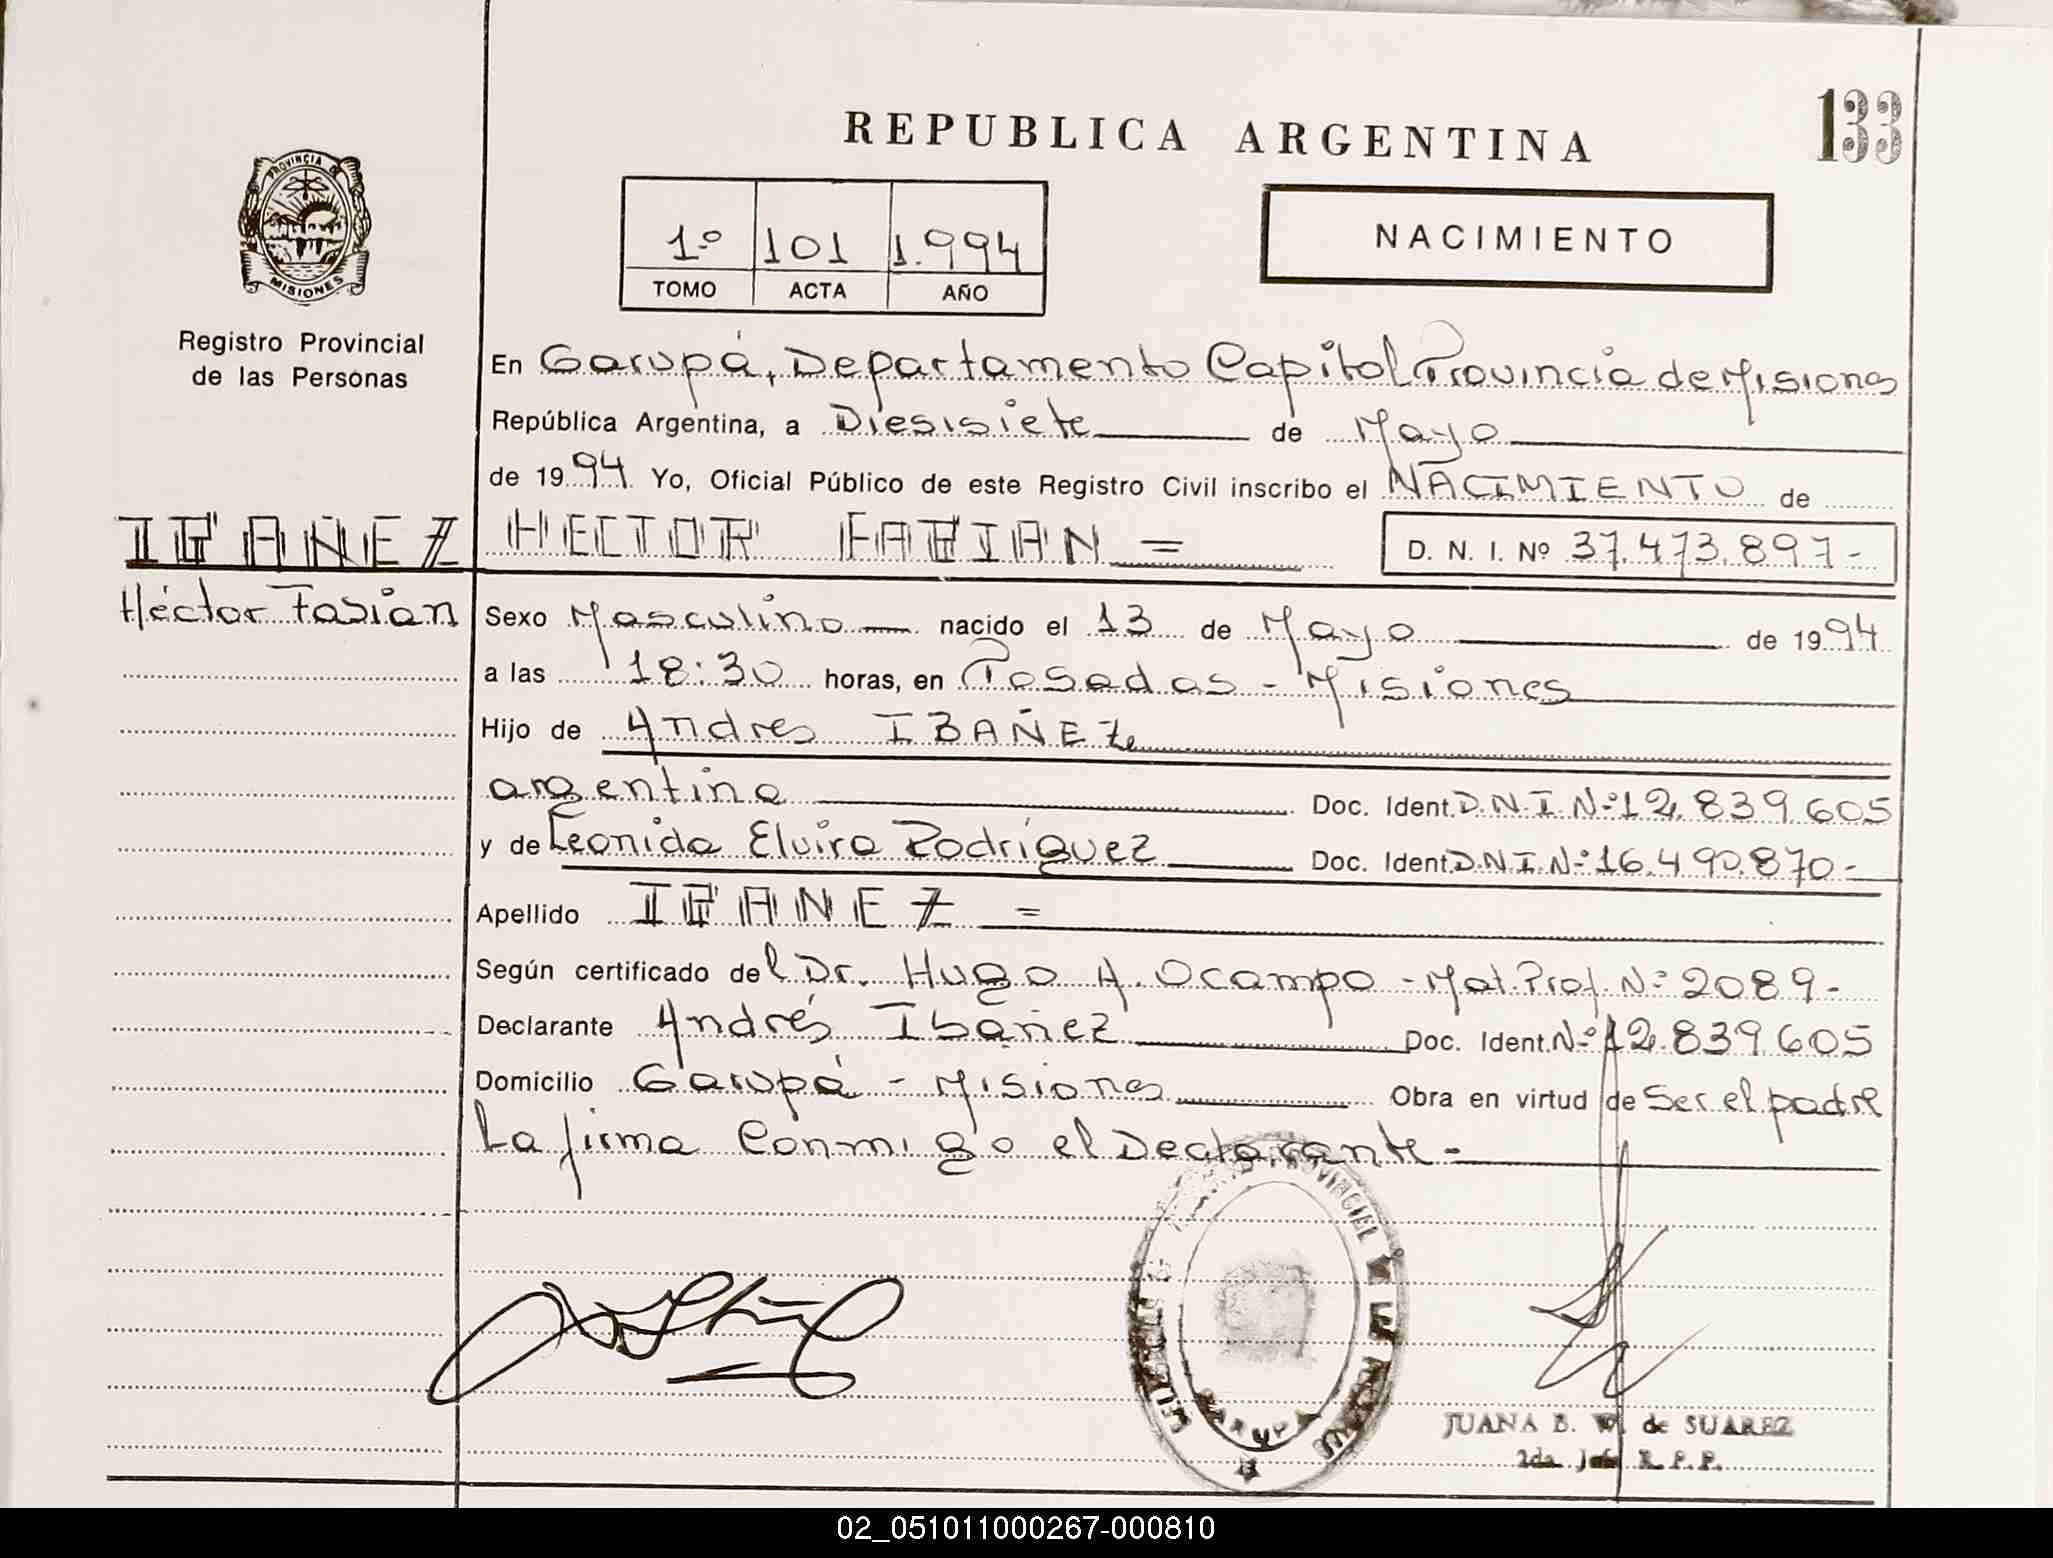 133
REPUBLICA ARGENTINA
PROVINCIA DE
MISIONES
Registro Provincial
de las Personas
1º 101 1.994
TOMO ACTA AÑO
NACIMIENTO
En Garupá, Departamento Capital Provincia de Misiones
República Argentina, a Diesisiete de Mayo
de 1994 Yo, Oficial Público de este Registro Civil inscribo el NACIMIENTO de
IBAÑEZ HECTOR FABIAN = D. N. I. Nº 37.473.897-
Héctor Fabian
Sexo Masculino nacido el 13 de Mayo de 1994
a las 18:30 horas, en Posadas - Misiones
Hijo de Andres IBAÑEZ
argentina Doc. Ident. D.N.I Nº 12.839.605
y de Leonida Elvira Rodríguez Doc. Ident. D.N.I. Nº 16.490.870-
Apellido IBAÑEZ =
Según certificado del Dr. Hugo A. Ocampo - Mat. Prof. Nº 2089-
Declarante Andrés Ibañez Doc. Ident. Nº 12.839.605
Domicilio Garupá - Misiones Obra en virtud de Ser el padre
La firma Conmigo el Declarante-
GARUPA
JUANA B. W. de SUAREZ
2da. Jefe R. P. P.
02_051011000267-000810